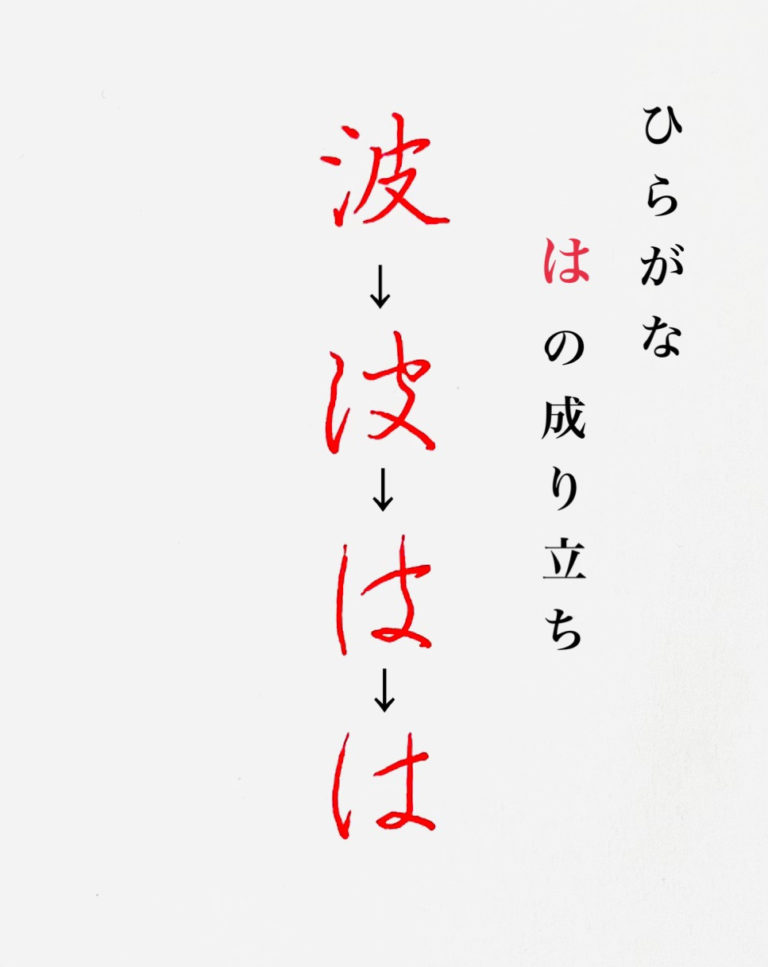 ひらがな
はの成り立ち
波
↓
波
↓
は
↓
は